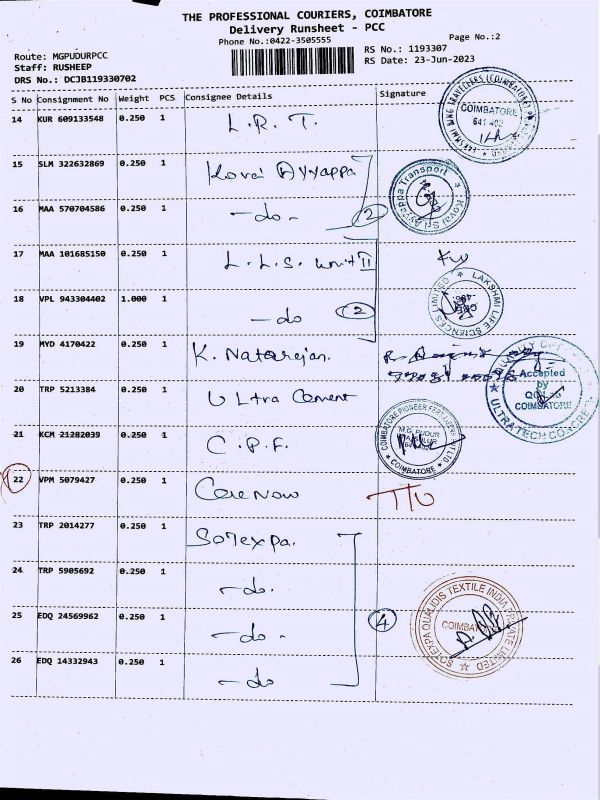 THE PROFESSIONAL COURIERS, COIMBATORE
Delivery Runsheet - PCC
Phone No.:0422-3505555
Page No.:2
Route: MGPUDURPCC
RS No.: 1193307
Staff: RUSHEEP
RS Date: 23-Jun-2023
DRS No.: DCJB119330702
S No Consignment No Weight PCS Consignee Details Signature
14 KUR 609133548 0.250 1 L.R.T.
COIMBATORE
15 SLM 322632869 0.250 1 Kovai Ayyappa
Kovai Sri Ayyappa Transport
16 MAA 570704586 0.250 1 -do- 2
17 MAA 101685150 0.250 1 L.L.S. Unit II
18 VPL 943304402 1.000 1 -do 2
LAKSHMI LIFE SCIENCES LIMITED
19 MYD 4170422 0.250 1 K. Natarajan.
20 TRP 5213384 0.250 1 Ultra Cement
Accepted
by
COIMBATORE
ULTRATECH CONCRETE
21 KCM 21282039 0.250 1 C.P.F.
COIMBATORE PIONEER FERTILIZERS
M.G. PUDUR
COIMBATORE
22 VPM 5079427 0.250 1 CareNow
23 TRP 2014277 0.250 1 Sotexpa.
24 TRP 5905692 0.250 1 -do.
25 EDQ 24569962 0.250 1 -do- 4
SOTEXPA QUALIDIS TEXTILE INDIA PRIVATE LIMITED
26 EDQ 14332943 0.250 1 -do